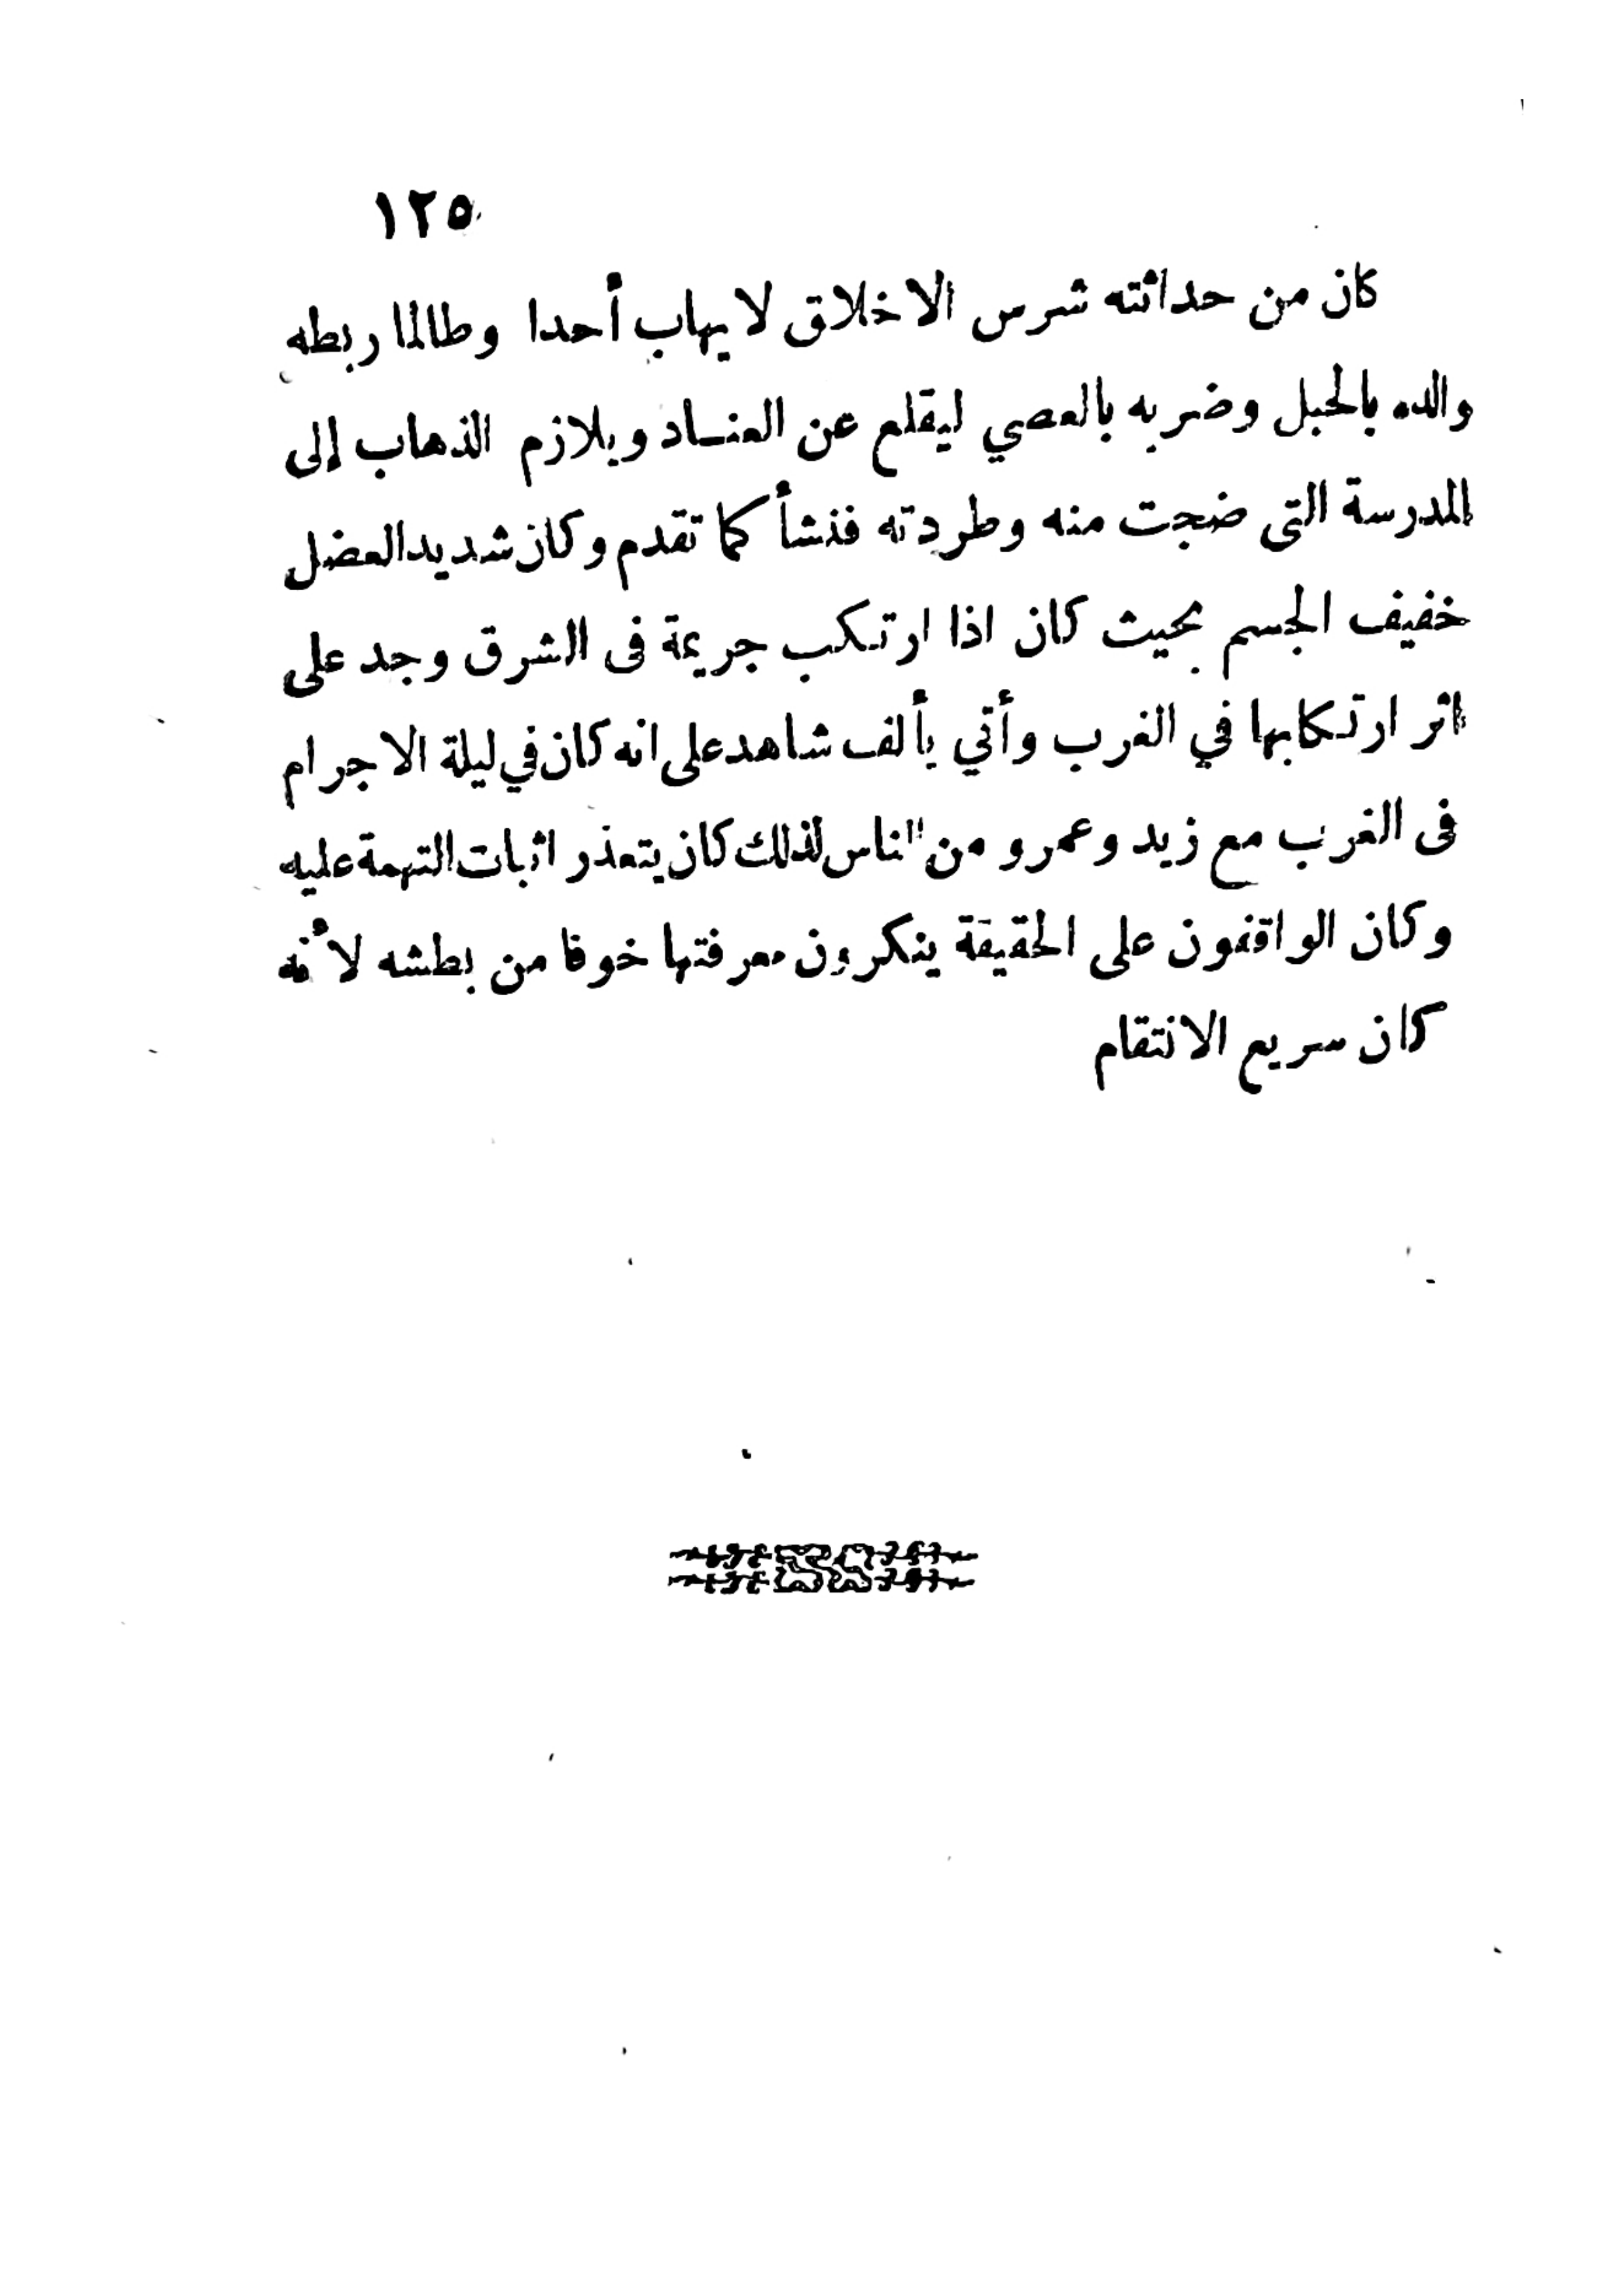 ١٢٥
كان من حداثته شرس الاخلاق لا يهاب أحدا وطالما ربطه
والده بالحبل وضربه بالعصي ليقلع عن الفساد ويلازم الذهاب إلى
المدرسة التى ضجت منه وطردته فنشأ كما تقدم وكان شديد العضل
خفيف الجسم بحيث كان اذا ارتكب جريمة فى الشرق وجد على
اثر ارتكابها في الغرب وأتي بألف شاهد على انه كان في ليلة الاجرام
فى الغرب مع زيد وعمرو من الناس لذلك كان يتعذر اثبات التهمة عليه
وكان الواقفون على الحقيقة ينكرون معرفتها خوفا من بطشه لأنه
كان سريع الانتقام